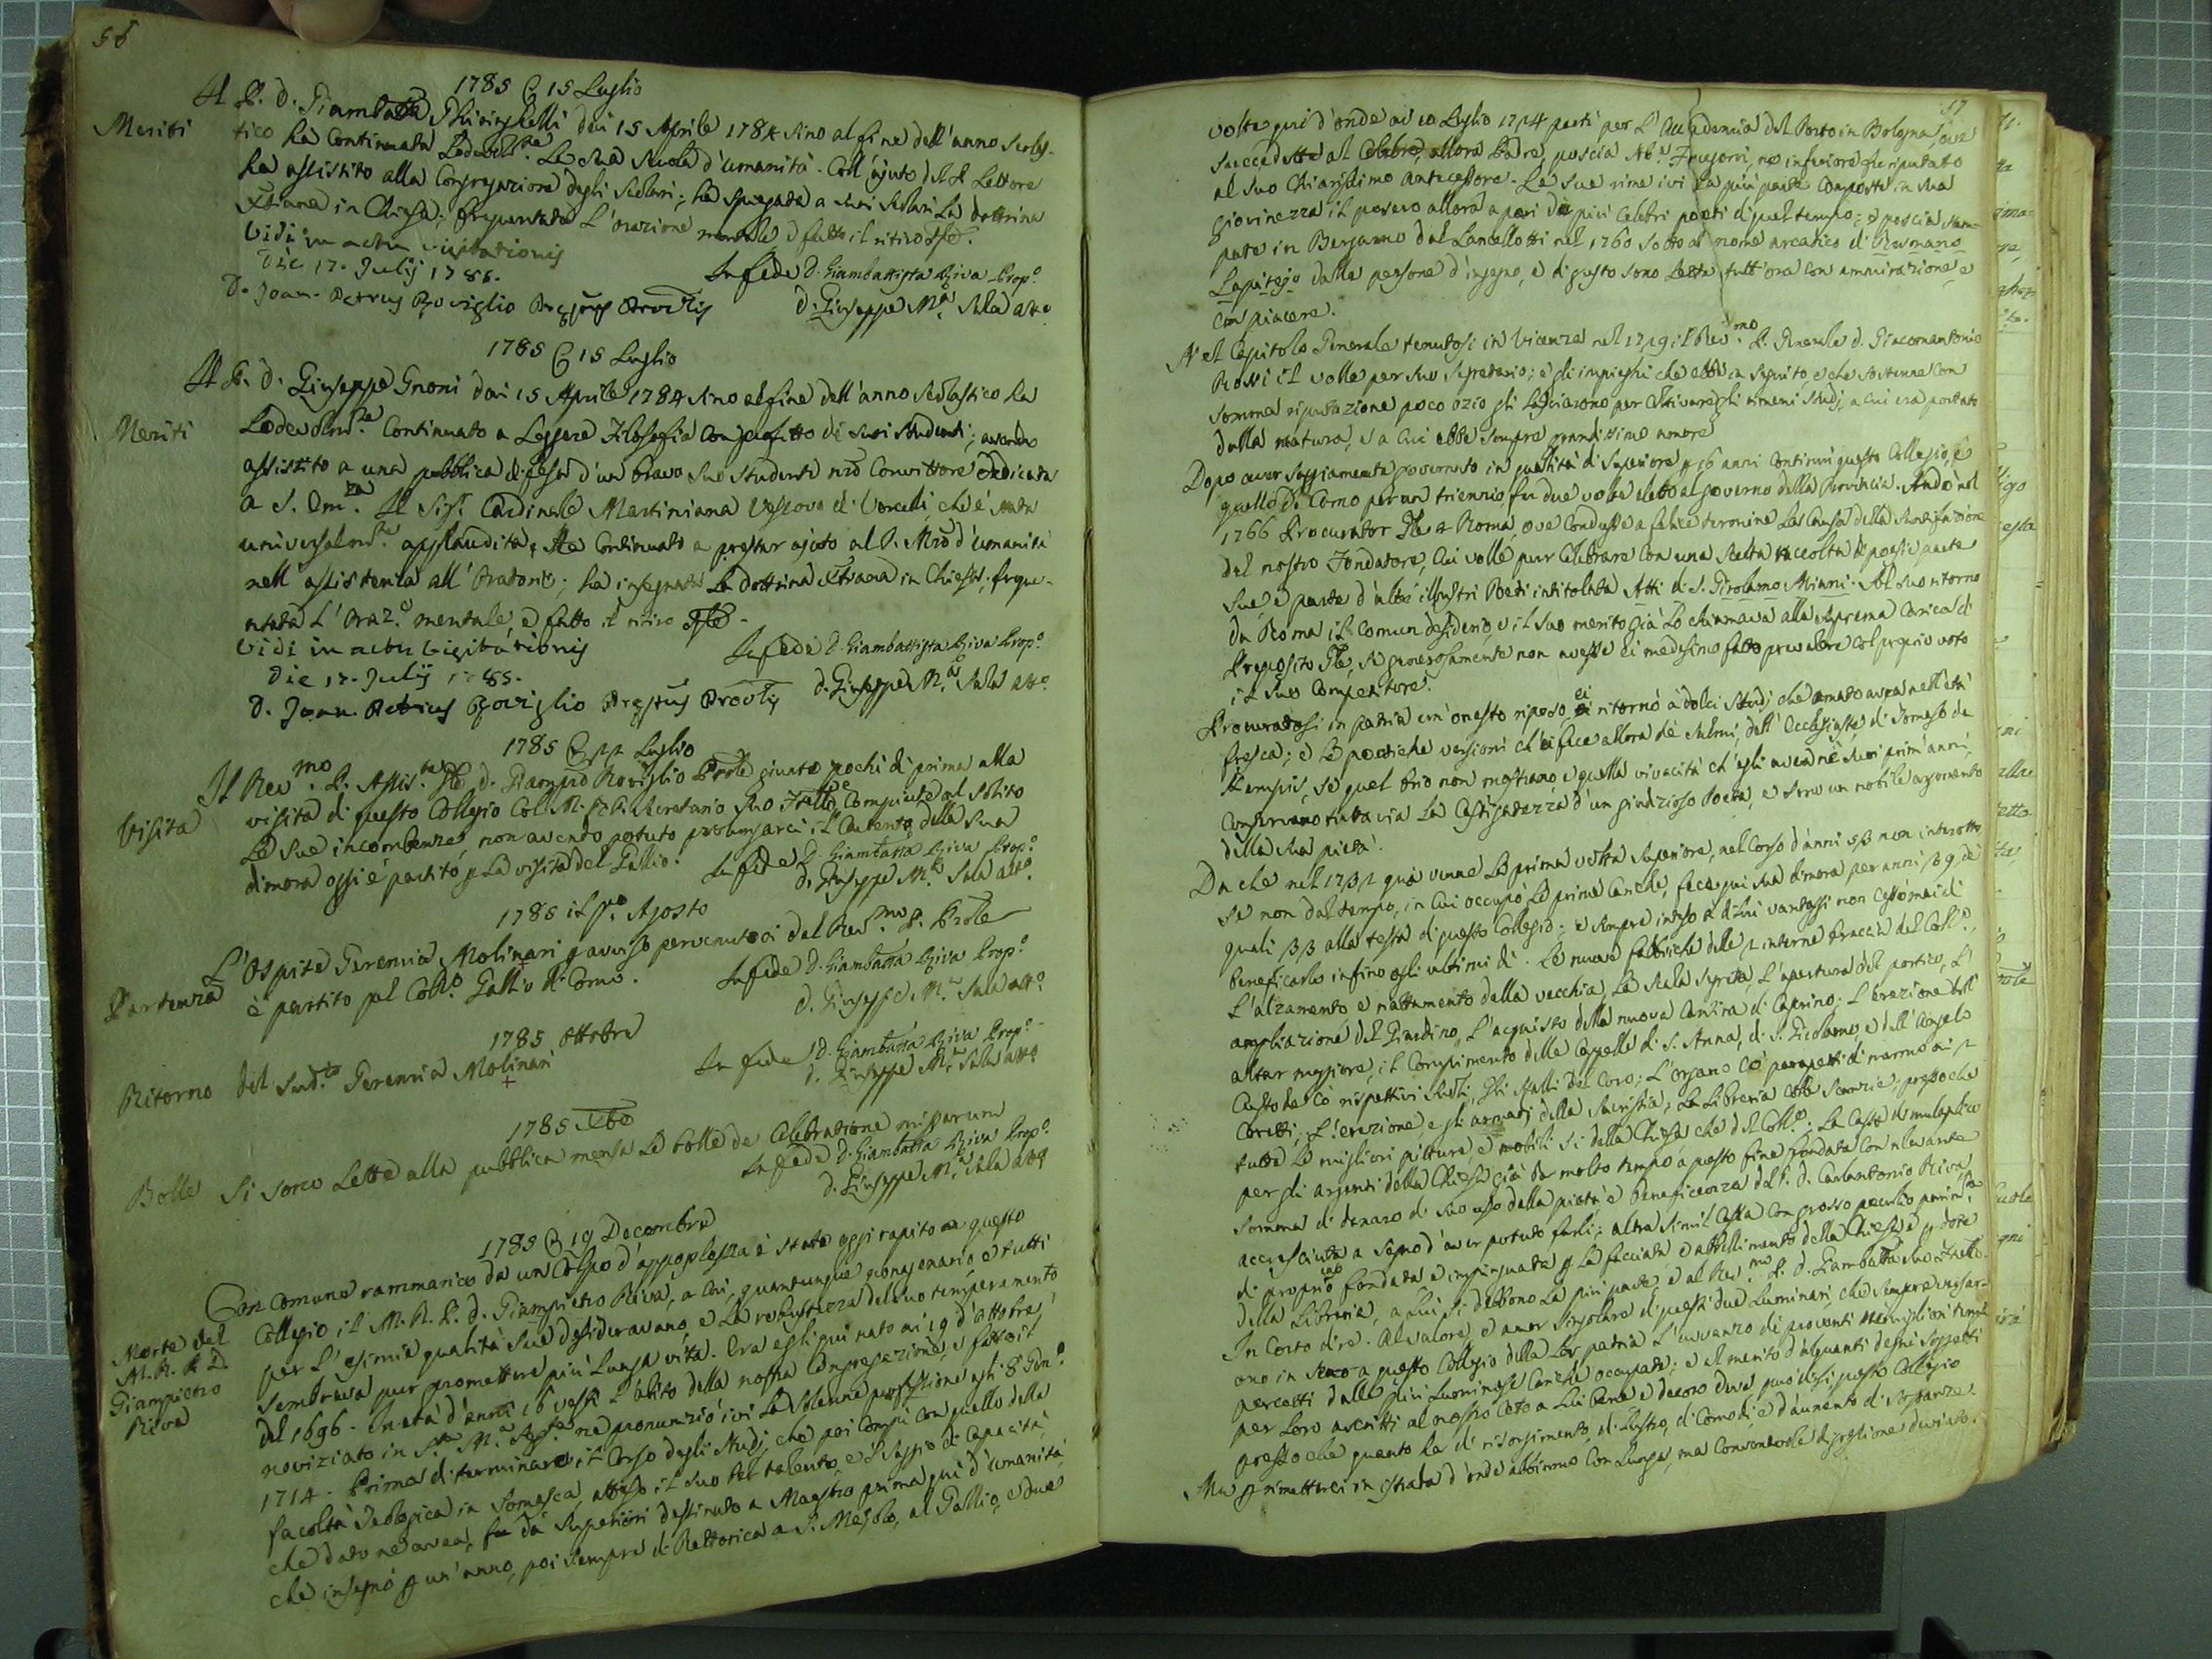 56
1785 @ 15 Luglio
Meriti
Il P. D. Giambatta Ghiringhelli dai 15 Aprile 1784 sino al fine dell'anno scolas-
tico ha continuata Lodevolm.te La sua scuola d'umanità. Coll'ajuto del P. Lettore
ha assistito alla Congregazione degli Scolari; ha spiegata a suoi scolari La dottrina
Xtiana in Chiesa; frequentata L'orazione mentale, e fatto il ritiro
Vidi in actu visitationis
Die 17. Julij 1785.
In fede D. Giambattista Riva Prop.o
D. Joan. Petrus Roviglio
d. Giuseppe M.a Sala att.o
1785 @ 15 Luglio
Meriti
Il P. D. Giuseppe Gnoni dai 15 Aprile 1784 sino al fine dell'anno scolastico ha
Lodevolm.te Continuato a Leggere Filosofia con profitto de' suoi studenti; avendo
assistito a una pubblica difesa d'un bravo suo studente nro Convittore dedicata
a S. Em.za Il Sig. Cardinale Martiniana Vescovo di Vercelli, che è stata
universalm.te applaudita; Ha Continuato a prestar ajuto al P. Mro d'umanità
nell'assistenza all'Oratorio; ha insegnata La dottrina Xtiana in Chiesa; freque-
ntata L'Oraz.e mentale, e fatto il ritiro
Vidi in actu visitationis
In fede D. Giambattista Riva Prop.o
Die 17. Julij 1785.
d. Giuseppe M.a Sala att.o
D. Joan. Petrus Roviglio
1785 @ 22 Luglio
Visita
Il Rev.mo P. Assis.te Gle d. Giampro Roviglio Prole giunto pochi dì prima alla
visita di questo Collegio Col M. R. P. Secretario suo Fratello, Compiute al solito
Le sue incombenze, non avendo potuto prolungarci il Contento della sua
dimora oggi è partito p La visita del Gallio.
In fede D. Giambatta Riva Prop.o
d. Giuseppe M.a Sala att.o
1785 il p.o Agosto
Partenza
L'Ospite Geremia Molinari p avviso pervenutoci dal Rev.mo P. Prole
è partito pel Coll.o Gallio di Como.
In fede D. Giambatta Riva Prop.o
d. Giuseppe M.a Sala att.o
1785 Ottobre
Ritorno del sud.to Geremia Molinari
+
In fede D. Giambatta Riva Prop.o
d. Giuseppe M.a Sala att.o
1785 Xbre
Bolle Si sono Lette alla pubblica mensa Le bolle de Celebratione missarum
In fede D. Giambatta Riva Prop.o
d. Giuseppe M.a Sala att.o
1785 @ 19 Decembre
Morte del
M. R. P. D.
Giampietro
Riva
Con Comune rammarico da un Colpo d'appoplessia è stato oggi rapito a questo
Collegio il M. R. P. d. Giampietro Riva, a cui, quantunque nonagenario, e tutti
per L'esimie qualità sue desideravano e La robustezza del suo temperamento
sembrava pur promettere più Lunga vita. Era egli qui nato ai 19 d'ottobre
del 1696. In età d'anni 16 vestì L'abito della nostra Congregazione, e fatto il
noviziato in S.ta M.a Seg.ta ne pronunziò ivi La solenne professione agli 8 Gen.o
1714. Prima di terminare il Corso degli studj, che poi Compì con quello della
facoltà Teologica in Somasca, atteso il suo bel talento, e 'l saggio di Capacità,
che dato ne avea, fu da' Superiori destinato a Maestro prima qui d'umanità,
che insegnò p un'anno, poi sempre di Rettorica a S. Majolo, al Gallio, e due
57
volte qui d'onde ai 20 Luglio 1724 partì per L'Accademia del Porto in Bologna, ove
succedette al Celebre, allora Padre, poscia Ab.e Frugoni, ne inferiore fu riputato
al suo Chiarissimo antecessore. Le sue rime ivi La più parte Composte in sua
giovinezza il posero allora a pari de' più Celebri poeti di quel tempo; e poscia stam-
pate in Bergamo dal Lancellotti nel 1760 sotto al nome arcadico di Rosmano
Lapitejo dalle persone d'ingegno, e di gusto sono Lette tutt'ora con ammirazione, e
con piacere.
Nel Capitolo Generale tenutosi in Vicenza nel 1729 il Rev.mo P. Generale d. Giacomantonio
Rossi il volle per suo Segretario; e gli impieghi che ebbe in seguito, e che sostenne con
somma riputazione poco ozio gli Lasciarono per Coltivare gli ameni studj, a cui era portato
dalla natura, e a cui ebbe sempre grandissimo amore
Dopo aver saggiamente governato in qualità di Superiore p 16 anni Continui questo Collegio, e
quello di Como per un triennio fu due volte eletto al governo della Provincia. Andò nel
1766 Procurator Gle a Roma, ove Condusse a felice termine La Causa della Santificazione
del nostro Fondatore, Cui volle pur Celebrare con una scelta raccolta di poesie parte
sue, e parte d'altri illustri Poeti intitolata Atti di S. Girolamo Miani. Al suo ritorno
da Roma il Comun desiderio, e il suo merito già Lo chiamava alla suprema Carica di
Preposito Gle, se generosamente non avesse ei medesimo fatto prevalere col proprio voto
il suo Competitore.
Procuratosi in patria un'onesto riposo, ei ritornò a' dolci studj che amato avea nell'età
fresca; e Le poetiche versioni ch'ei fece allora de' Salmi, dell'Ecclesiaste, di Tomaso da
Kempis, se quel brio non mostrano, e quella vivacità ch'egli avea ne' suoi prim'anni,
conservano tuttavia La Castigatezza d'un giudizioso Poeta, e sono un nobile argomento
della sua pietà.
Da che nel 1732 quà venne La prima volta Superiore, nel Corso d'anni 53 non interrotto
se non dal tempo, in cui occupò Le prime Cariche, fece qui sua dimora per anni 39 de'
quali 33 alla testa di questo Collegio; e sempre inteso a di Lui vantaggi non cessò mai di
beneficarlo infino agli ultimi dì. Le nuove fabbriche delle 2 interne braccia del Coll.o,
L'alzamento e riattamento della vecchia, La scala segreta, L'apertura del portico, L'
ampliazione del Giardino, L'acquisto della nuova Cantina di Caprino; L'erezione dell'
altar maggiore, il Compimento delle Cappelle di S. Anna, di S. Girolamo, e dell'Angelo
Custode Co' rispettivi sedili, Gli stalli del Coro; L'organo Co' parapetti di marmo ai 2
Coretti; L'erezione, e gli armadj della Sacristia; La Libreria colle scanzie; pressoche
tutte Le migliori pitture, e mobili sì della Chiesa che del Coll.o; La Cassa di multiplico
per gli argenti della Chiesa già da molto tempo a questo fine fondata con rilevante
somma di denaro di suo uso della pietà e beneficenza del P. D. Carlantonio Riva,
accresciuta a segno d'aver potuto farli; altra simil Cassa con grosso peculio parim.te
di proprio fondata e impinguata p La facciata, e abbellimento della Chiesa e p dote
della Libreria, a Lui si debbono La più parte, e al Rev.mo P. D. Giambatta suo Fratello.
In corto dire. Al valore, e amor singolare di questi due Luminari, che sempre versar-
ono in seno a questo Collegio della Lor patria L'avvanzo de' proventi
percetti dalle più Luminose Cariche occupate; e al merito d'alquanti degni soggetti
per Loro ascritti al nostro Ceto a Lui bene e decoro deve può dirsi questo Collegio
presso che quanto ha di risorgimento, di Lustro, di Comodi, e d'aumento di sostanze.
Ma p rimetterci in istrada d'onde abbiamo con Lunga, ma Convenevole digressione deviato.